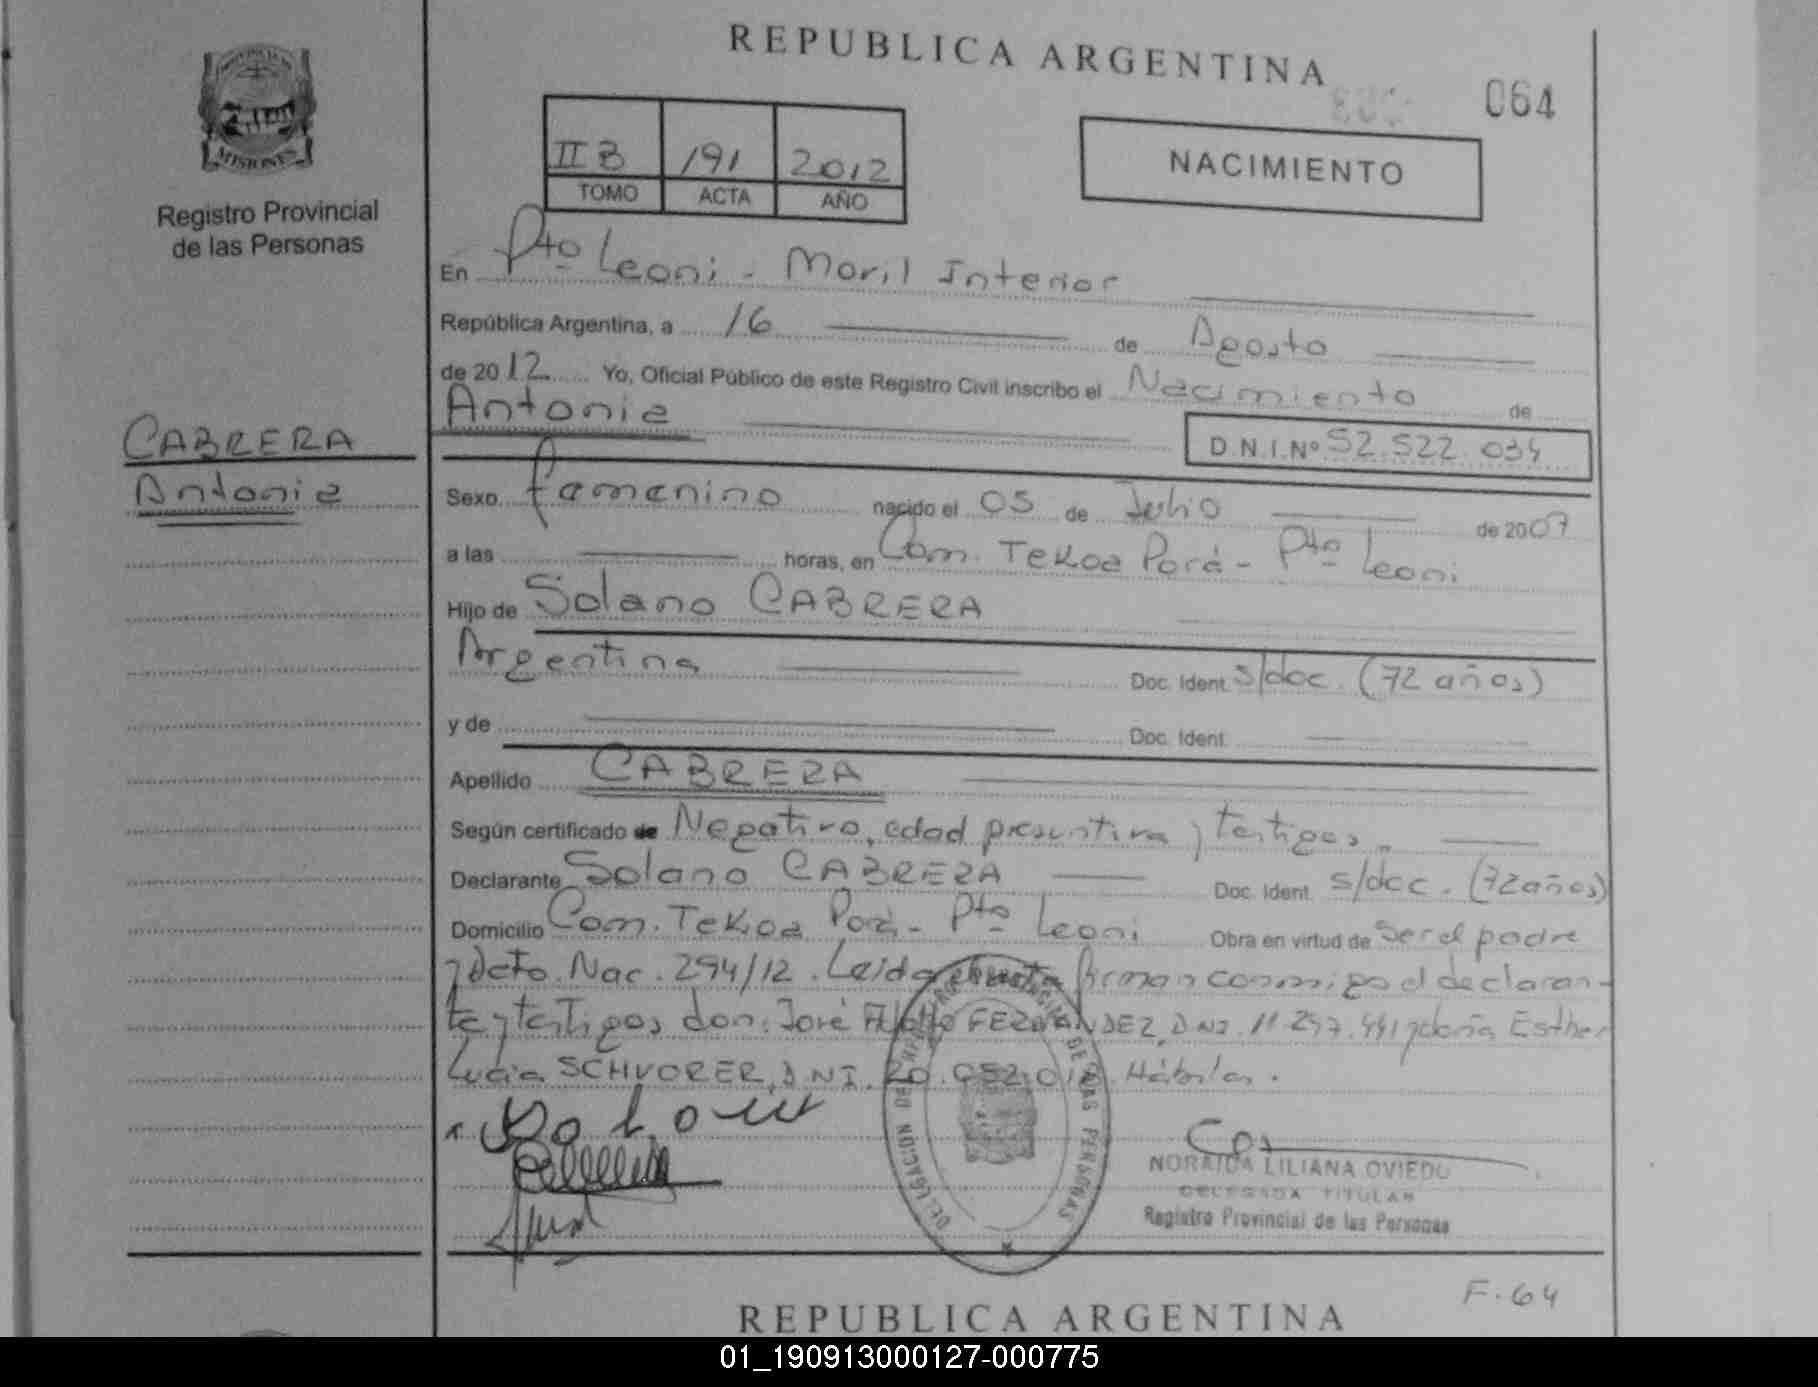 REPUBLICA ARGENTINA
064
PROVINCIA DE
MISIONES
Registro Provincial
de las Personas
II B 191 2012
TOMO ACTA AÑO
NACIMIENTO
En Pto Leoni - Moril Interior
República Argentina, a 16 de Agosto
de 2012 Yo, Oficial Público de este Registro Civil inscribo el Nacimiento de
CABRERA
Antonia
Antonia
D.N.I.Nº 52.522.034
Sexo femenino nacido el 05 de Julio de 2007
a las horas, en Com. Tekoa Porá - Pto Leoni
Hijo de Solano CABRERA
Argentina Doc. Ident. s/doc. (72 años)
y de Doc. Ident.
Apellido CABRERA
Según certificado de Negativo, edad presuntiva y testigos.
Declarante Solano CABRERA Doc. Ident. s/doc. (72 años)
Domicilio Com. Tekoa Porá - Pto Leoni Obra en virtud de Ser el padre
y Dcto. Nac. 294/12. Leida el acta firman conmigo el declaran-
te y testigos don: José FERNANDEZ, DNI. 11.297.441 y doña Esther
Lucia SCHVORER, DNI. 20. Hábiles.
DELEGACION DE LAS PERSONAS
NORAIDA LILIANA OVIEDO
DELEGADA TITULAR
Registro Provincial de las Personas
F. 64
REPUBLICA ARGENTINA
01_190913000127-000775